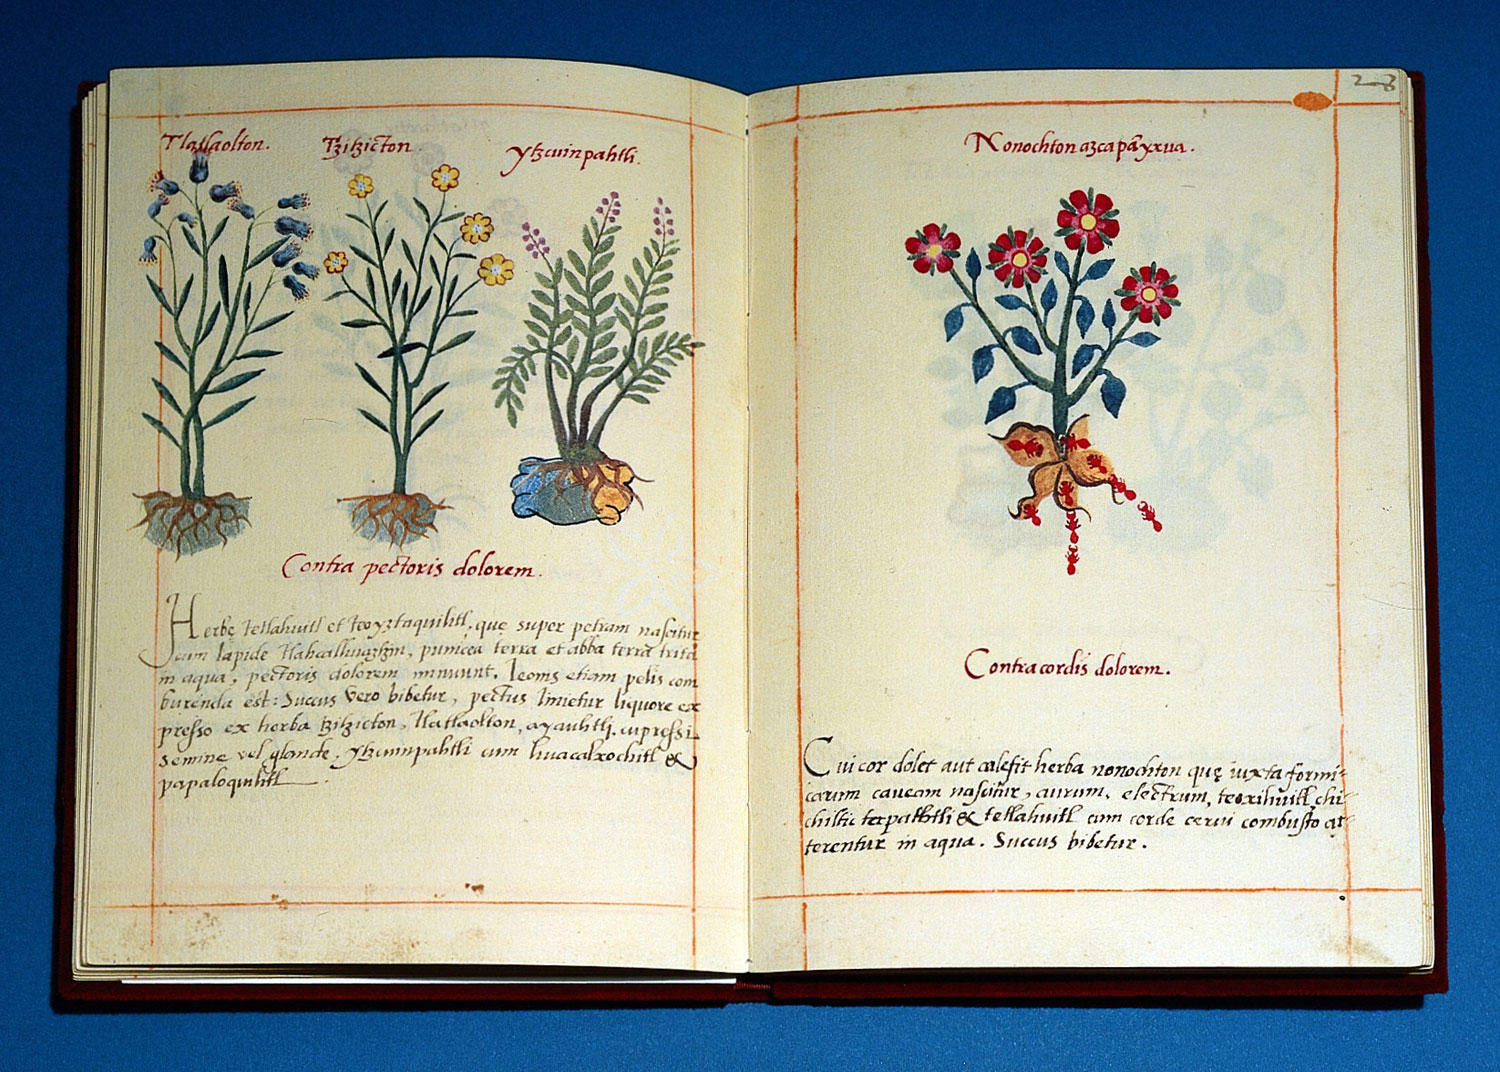 Tlatlaolton.
Tzitzicton.
ytzcuinpahtli.
Contra pectoris dolorem.
Herbę tetlahuitl et teoyztaquilitl, quę super petram nascitur
cum lapide tlahcalhuatzin, punicea terra et abba terra trita
in aqua, pectoris dolorem minuunt. leonis etiam pelis com
burenda est: Succus vero bibetur, pectus linietur liquore ex
presso ex herba tzitzicton, tlatlaolton, ayauhtli, cupressi
semine vel glande, ytzcuinpahtli cum huacalxochitl &
papaloquilitl
28
Nonochton azcapãyxua.
Contra cordis dolorem.
Cui cor dolet aut calefit herba nonochton quę iuxta formi-
carum caveam nascitur, aurum, electrum, teoxihuitl, chi-
chiltic tecpathtli & tetlahuitl cum corde cervi combusto at-
terentur in aqua. Succus bibetur.